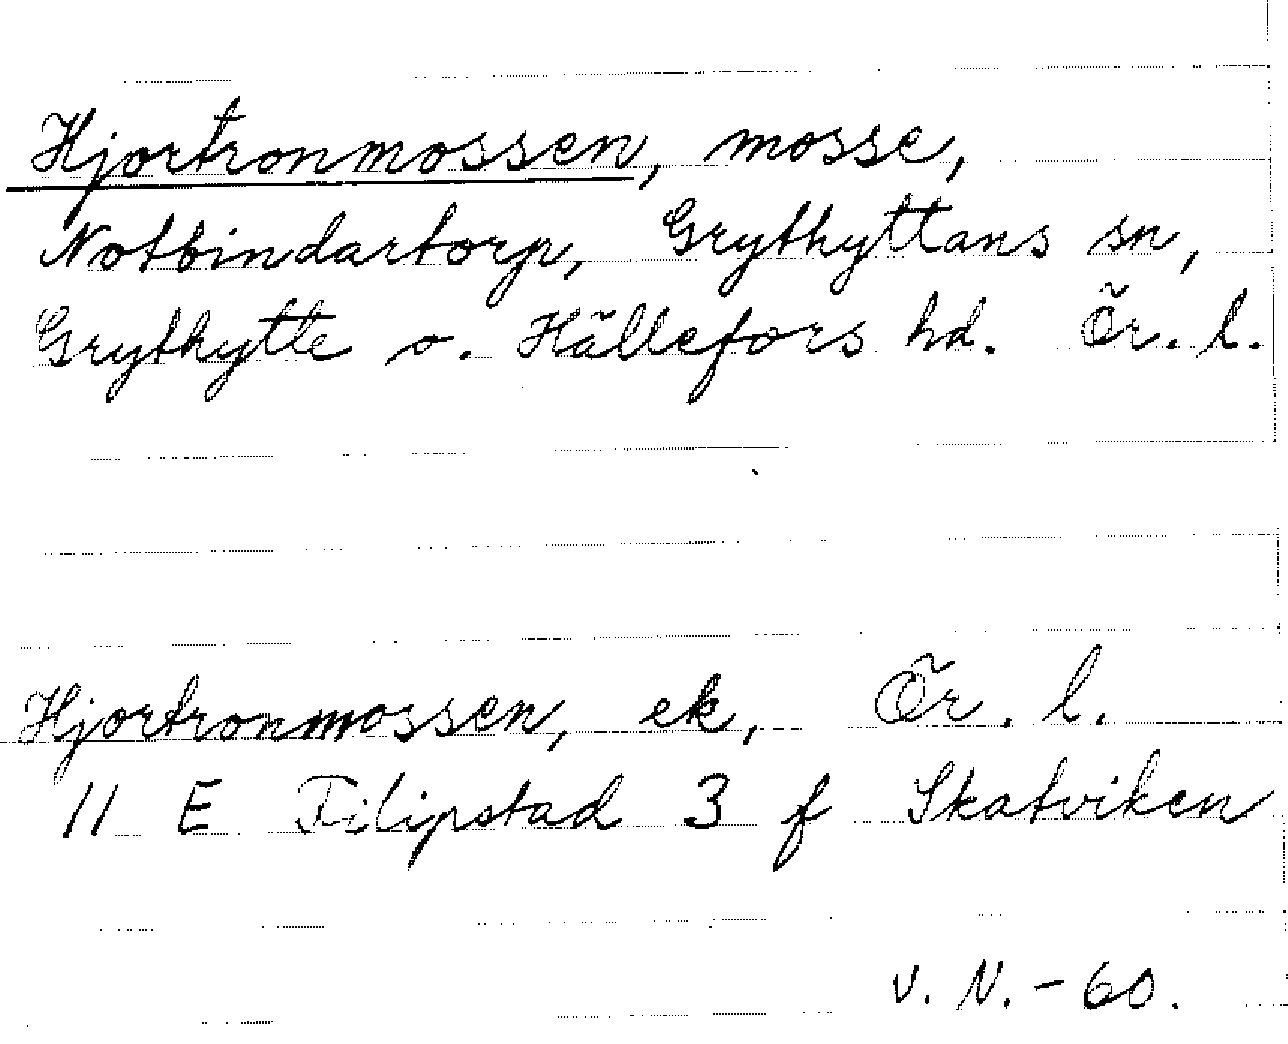 Hjortronmossen, mosse,
Notbindartorp, Grythyttans sn,
Grythytte o. Hällefors hd. Ör. l.
Hjortronmossen, ek, Ör. l.
11 E Filipstad 3 f Skatviken
v. N. - 60.